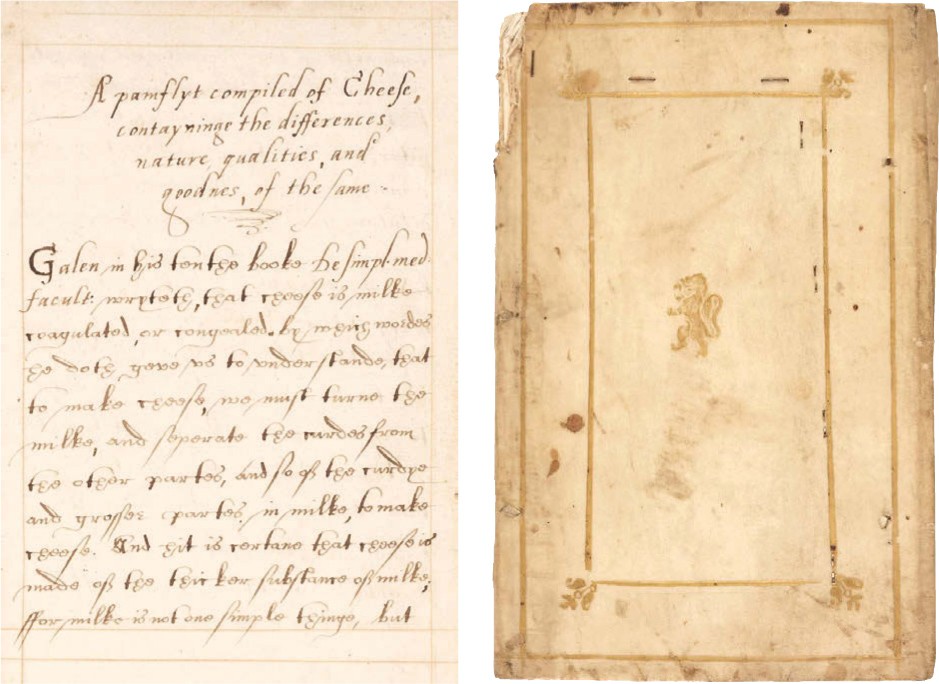 A pamflyt compiled of Cheese,
contayninge the differences,
nature, qualities, and
goodnes, of the same.
Galen in his tenthe booke De simpl. med.
facult: wryteth, that cheese is milke
coagulated, or congealed. by which wordes
he doth geve us to understande, that
to make cheese, we must turne the
milke, and seperate the curdes from
the other partes, and so of the curdye
and grosser partes in milke, to make
cheese. And hit is certane that cheese is
made of the thicker substance of milke;
ffor milke is not one simple thinge, but